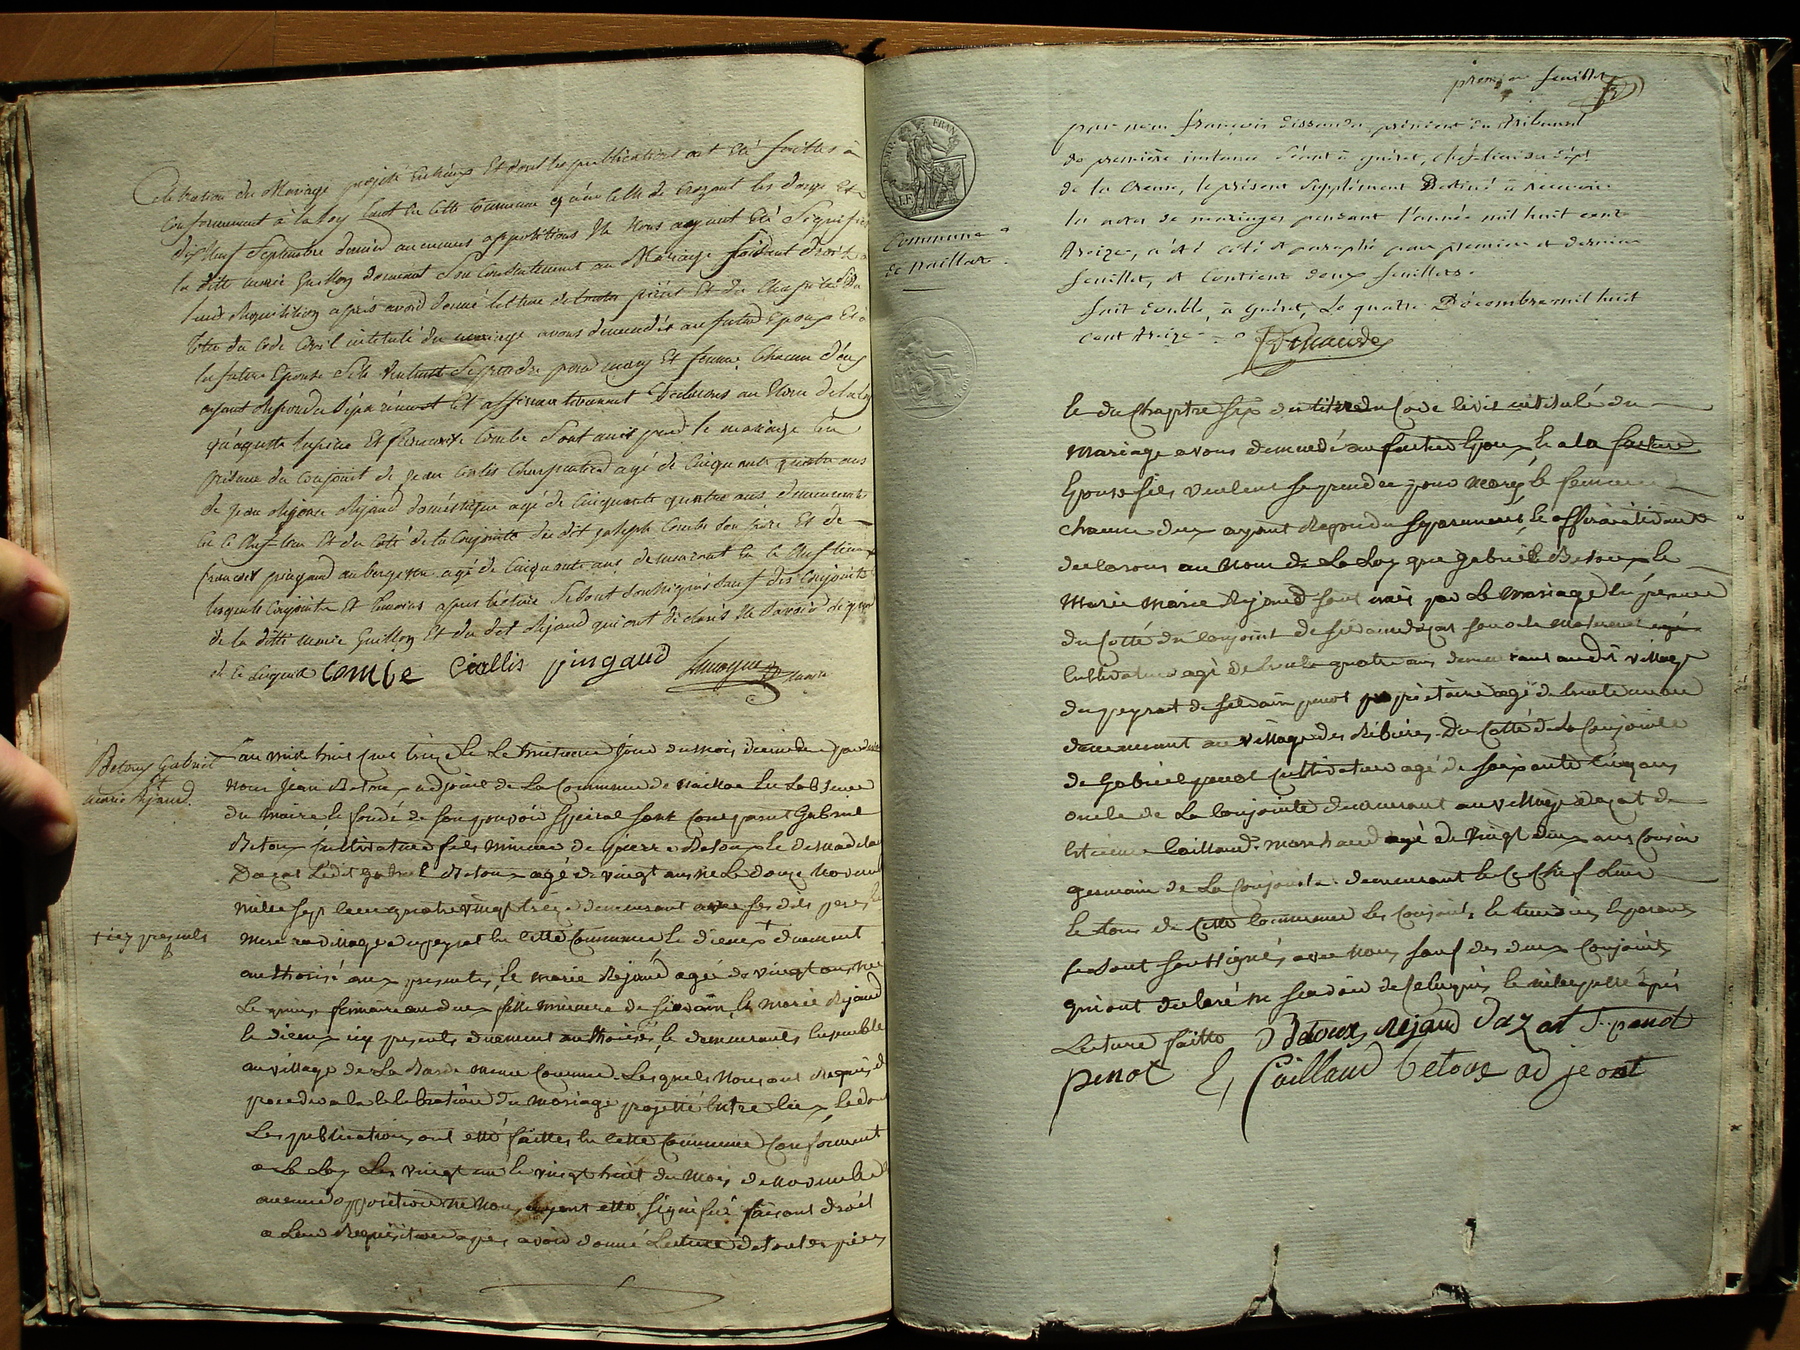 Celebration du Mariage projetté entr'eux Et dont les publications ont Eté faittes
Conformement à la Loy tant en cette Commune qu'en celle de Crozant les douze Et
dixneuf Septembre dernier aucunes oppositions Ne Nous ayant Eté Signifié
la ditte marie Guillon donnant Son Consentement au Mariage faisant droit à
leur Requisition apres avoir donné lecture de toutes pièces Et du Chapitre Six
titre du Code Civil intitulé du mariage avons demandés au futur Epoux Et à
la future Epouse S'ils veulent Se prendre pour mary Et femme Chacun d'eux
ayant Repondu Séparément Et affirmativement Declarons au Nom de la Loy
Et Combe Sont unis par le mariage En
présence du Conjoint de Jean Ciallis Charpentier agé de Cinquante quatre ans
de Jean Rejaud domestique agé de Cinquante quatre ans demeurant
En ce Chef lieu Et du Coté de la Conjointe du dit joseph Combe Son frère Et de
françois pingaud aubergiste agé de Cinquante ans demeurant En ce Chef lieu
lesquels Conjoints Et temoins apres lecture Se Sont Soussignés Sauf des Conjoints
de la ditte marie Guillon Et du dit Rejaud qui ont déclarés Ne Savoir
de ce Enquis Combe Ciallis pingaud maire
Betoux Gabriel
Et
marie Rejaud.
L'an mille huit Cent treize Et Le huitieme Jour du mois de
Nous Jean Betoux adjoint de La Commune de Naillat En L'absence
du Maire Et fondé de Son pouvoir Special Sont Comparus Gabriel
Betoux Cultivateur fils mineur de pierre Betoux Et de Madelaine
Dazat Ledit Gabriel Betoux agé de vingt ans Né Le douze Novembre
mille Sept Cent quatre vingt treize demeurant avec Ses dits pere Et
mere au village du peyrat En Cette Commune Et d'iceux † duement
† icy presents
authorisé aux presentes, Et marie Rejaud agée de vingt ans Née
Le quinze fille mineure de Silvain Et Marie Rejaud
Et d'iceux icy presents duement authorisée, Et demeurants Ensemble
au village de La Barde meme Commune. Les quels Nous ont Requis de
proceder a la Celebration du mariage projetté Entre Eux Et dont
Les publications ont etté faittes En Cette Commune Conforment
a La Loy Les vingt un Et vingt huit du Mois de Novembre
aucune opposition Ne Nous ayant etté Signifié faisant droit
a Leur Requisition apres avoir donné Lecture de toutes pieces
premier feuillet
Commune
de Naillat.
par nous françois dissandes president du tribunal
de première instance Séant à guéret, chef-lieu du dépt
de la Creuse, le présent Supplément Destiné à recevoir
les actes de mariages pendant l'année mil huit cent
treize, a été coté et paraphé par premier et dernier
feuillet, et Contient deux feuillets.
fait double, à Guéret, Le quatre Décembre mil huit
cent treize
Et du Chapitre Six du titre du Code Civil intitulé du
Mariage avons demandé au futur Epoux Et a la future
Epouse S'ils veulent Se prendre pour Mary Et femme
Chacun d'eux ayant Repondu Séparement Et affirmativement
declarons au Nom de La Loy que Gabriel Betoux Et
Marie Rejaud Sont unis par Le Mariage En presence
du Cotté du Conjoint de Silvain Dazat Son oncle maternel
Cultivateur agé de quatre ans demeurant au dit village
du peyrat de Silvain penot propriétaire agé de trente
demeurant au village des Ribières. Du Cotté de La Conjointe
de Gabriel penot Cultivateur agé de Soixante Cinq ans
oncle de La Conjointe demeurant au village de
Etienne Caillaud. marchand agé de vingt deux ans Cousin
germain de La Conjointe. demeurant En Ce Chef Lieu
Et tous de Cette Commune Les Conjoints Et temoins
Se Sont Soussignés avec Nous Sauf des deux Conjoints
qui ont declaré ne Scavoir de Ce Enquis Et interpellé après
Lecture faitte Betoux Rejaud Dazat S. penot
penot E, Caillaud betoux adjeont